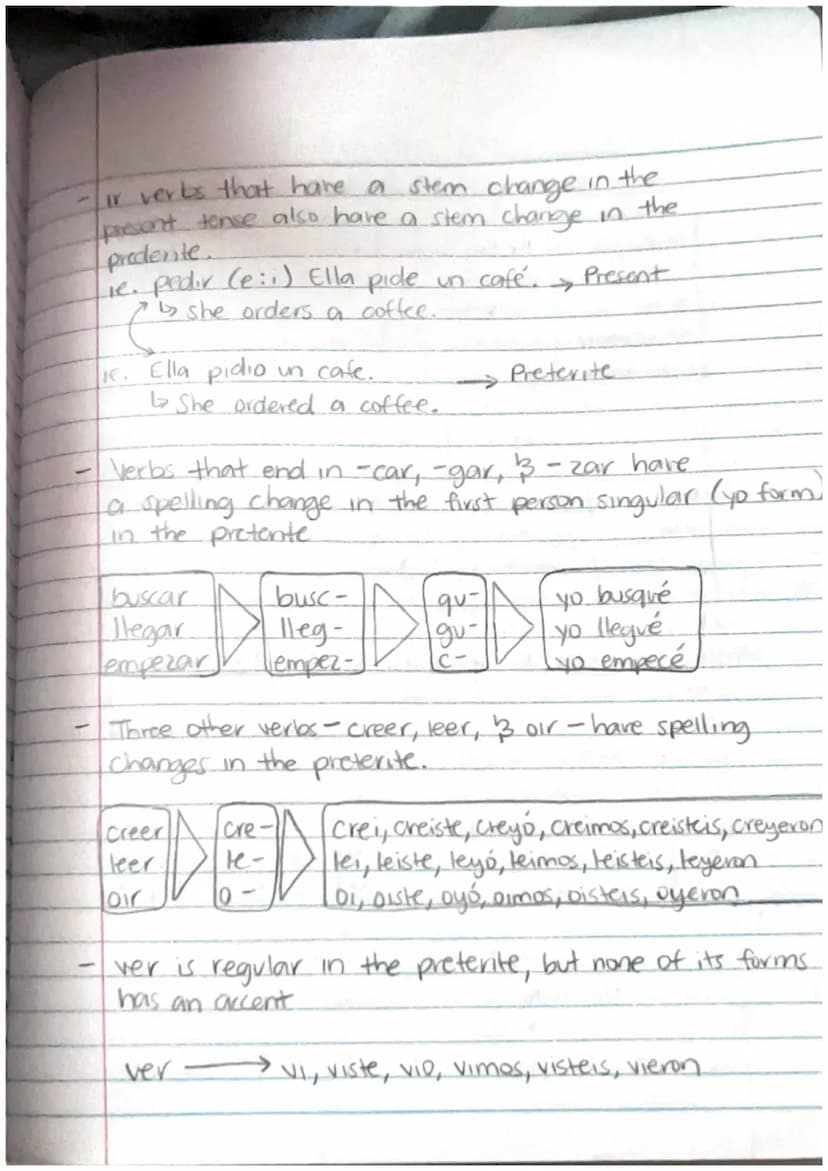 - ir verbs that have a stem change in the
present tense also have a stem change in the
prederite.
ie. pedir (e:i) Ella pide un café. → Present
↳ she orders a coffee.
ie. Ella pidio un cafe. → Preterite
↳ She ordered a coffee.
- Verbs that end in -car, -gar, & -zar have
a spelling change in the first person singular (yo form)
in the preterite
buscar busc- qu- yo busqué
llegar lleg- gu- yo llegué
empezar empez- c- yo empecé
- Three other verbs - creer, leer, & oir - have spelling
changes in the preterite.
creer cre- crei, creiste, creyó, creimos, creisteis, creyeron
leer le- lei, leiste, leyó, leimos, leisteis, leyeron
oir o- oi, oiste, oyó, oimos, oisteis, oyeron
- ver is regular in the preterite, but none of its forms
has an accent
ver → vi, viste, vio, vimos, visteis, vieron